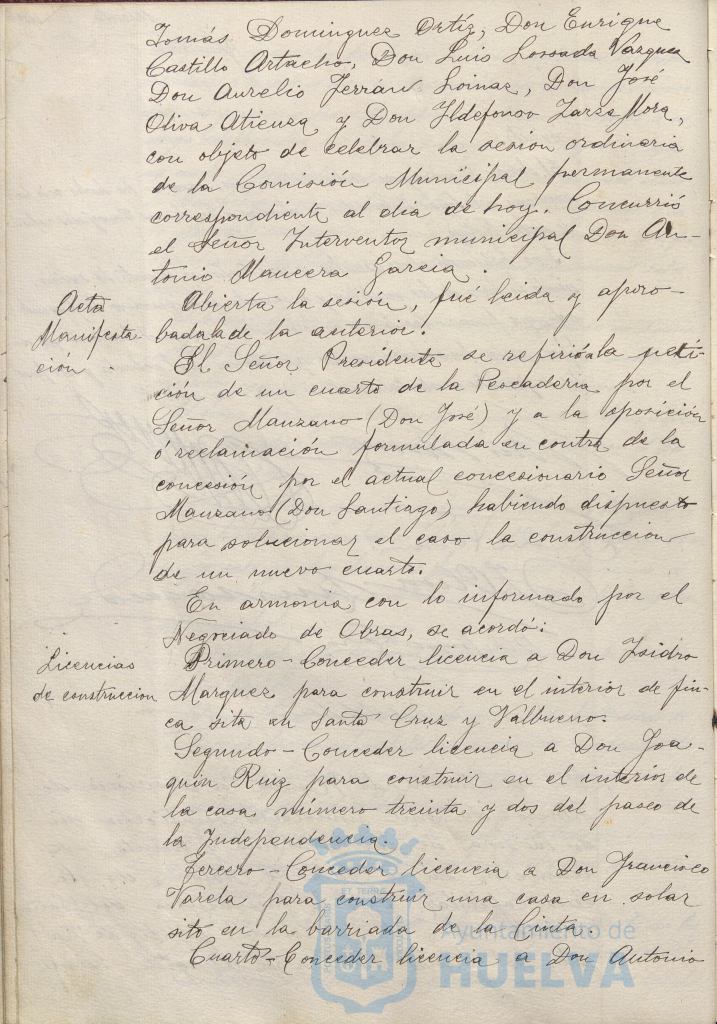 Tomás Dominguez Ortíz, Don Enrique
Castillo Artacho, Don Luis Lossada Vazquez
Don Aurelio Ferrán Loinaz, Don José
Oliva Atienza y Don Ildefonso Zarza Mora,
con objeto de celebrar la sesion ordinaria
de la Comisión Municipal permanente
correspondiente al dia de hoy. Concurrió
el Señor Interventor municipal Don An-
tonio Mancera Garcia.
Acta
Abierta la sesión, fué leida y apro-
badalade la anterior.
Manifesta
ción.
El Señor Presidente se refirióala peti-
ción de un cuarto de la Pescaderia por el
Señor Manzano (Don José) y a la oposición
ó reclamación formulada en contra de la
concesión por el actual concesionario Señor
Manzano (Don Santiago) habiendo dispuesto
para solucionar el caso la construccion
de un nuevo cuarto.
En armonia con lo informado por el
Negociado de Obras, se acordó:
Licencias
de construccion
Primero - Conceder licencia a Don Isidro
Marquez para construir en el interior de fin-
ca sita en Santa Cruz y Valbueno.
Segundo - Conceder licencia a Don Joa-
quin Ruiz para construir en el interior de
la casa número treinta y dos del paseo de
la Independencia.
Tercero - Conceder licencia a Don Francisco
Varela para construir una casa en solar
sito en la barriada de la Cinta.
Cuarto - Conceder licencia a Don Antonio
Ayuntamiento de
HUELVA